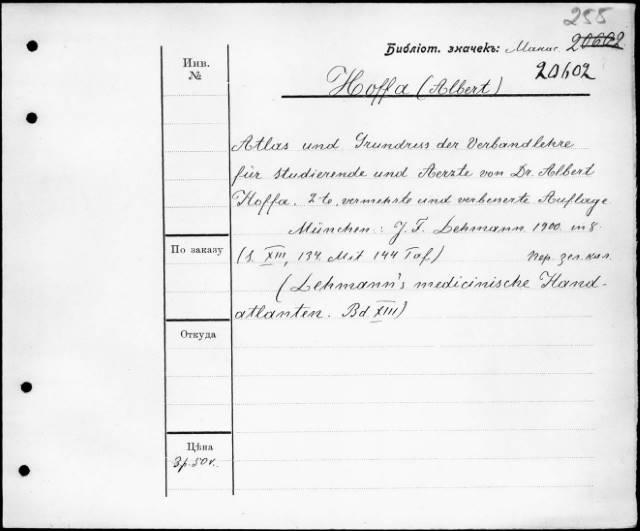 255
Библіот. значекъ: 20602
20602
Инв.
№
Hoffa (Albert)
Atlas und Grundriss der Verbandlehre
für Studierende und Aerzte von Dr. Albert
Hoffa. 2-te, vermehrte und verbesserte Auflage
München: J. F. Lehmann. 1900. in 8.
(S. XIII, 134. Mit 144 Taf.) Пер. зел. кал.
По заказу
(Lehmann's medicinische Hand-
atlanten. Bd XIII)
Откуда
Цѣна
3 р. 50 к.